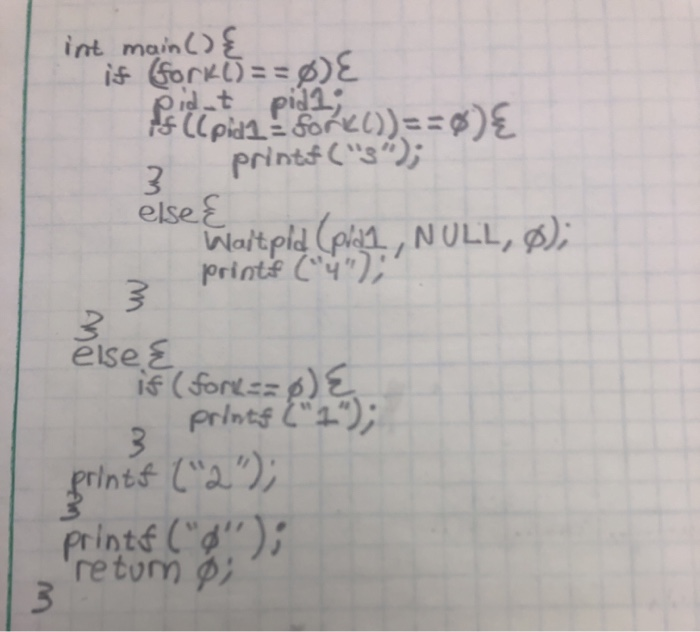 int main(){
if (fork()==0){
pid_t pid1;
if((pid1=fork())==0){
printf("3");
}
else{
Waitpid(pid1, NULL, 0);
printf("4");
}
}
else{
if(fork==0){
printf("1");
}
printf("2");
}
printf("0");
return 0;
}